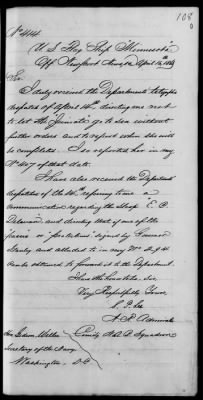 108
No 444
U. S. Flag Ship Minnesota
Off Newport News, Va April 16th 1864
Sir
I duly received the Department's telegraphic
dispatch of April 14th directing me not
to let the "Juniata" go to sea without
further orders and to report when she will
be completed. I so reported her in my
No 407 of that date.
I have also received the Department's
dispatches of the 14th referring to me a
communication regarding the Sloop E. C.
Delavan and directing that if one of the
signed by Governor
and alluded to in my No 294
can be obtained to forward it to the Department.
I have the honor to be, Sir
Very Respectfully Yours
S. P. Lee
A. R. Admiral
Comdg N. A. B. Squadron
Hon Gideon Welles
Secretary of the Navy
Washington D.C